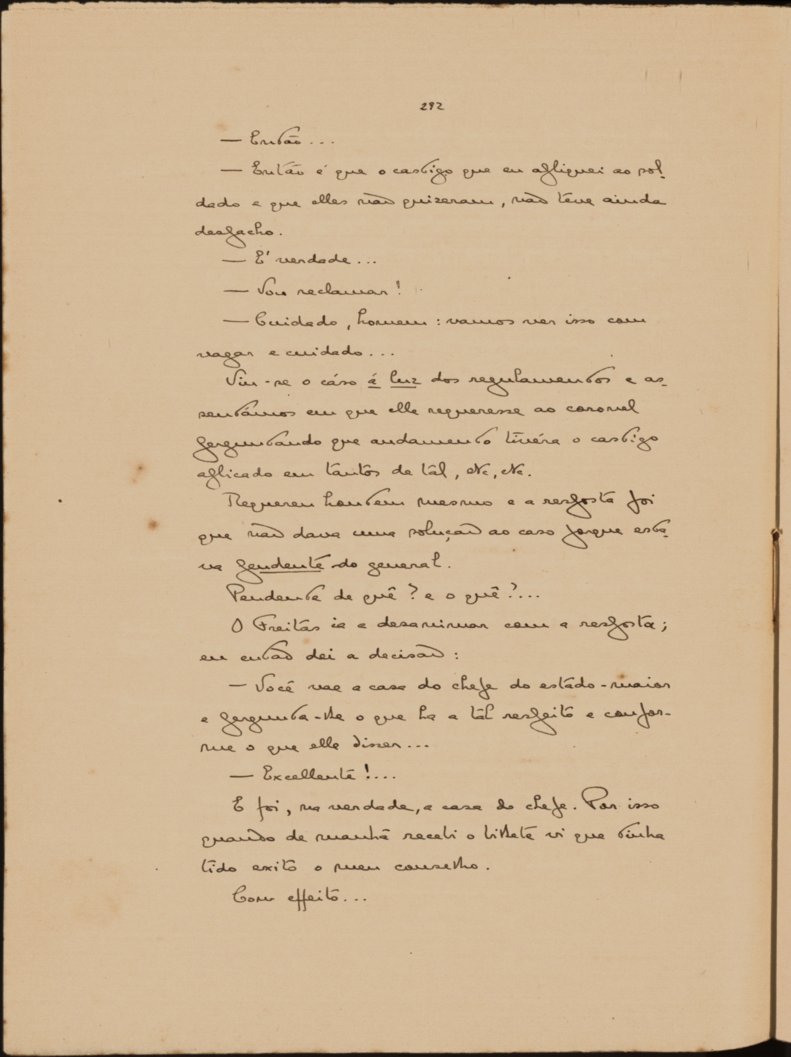 292
— Então...
— Então é que o castigo que eu apliquei ao sol-
dado e que elles não quizeram, não teve ainda
despacho.
— E' verdade...
— Vou reclamar!
— Cuidado, homem: vamos ver isso com
vagar e cuidado...
Viu-se o cáso á luz dos regulamentos e as-
sentámos em que elle requeresse ao coronel
perguntando que andamento tivéra o castigo
aplicado em tantos de tál, etc, etc.
Requereu hontem mesmo e a resposta foi
que não dava uma solução ao caso porque esta-
va pendente do general.
Pendente de quê? e o quê?...
O Freitas ia a desanimar com a resposta;
eu então dei a decisão:
— Você vae a casa do chefe do estado-maior
e pergunta-lhe o que ha a tál respeito e confor-
me o que elle disser...
— Excellente!...
E foi, na verdade, a casa do chefe. Por isso
quando de manhã recebi o bilhete vi que tinha
tido exito o meu conselho.
Com effeito...